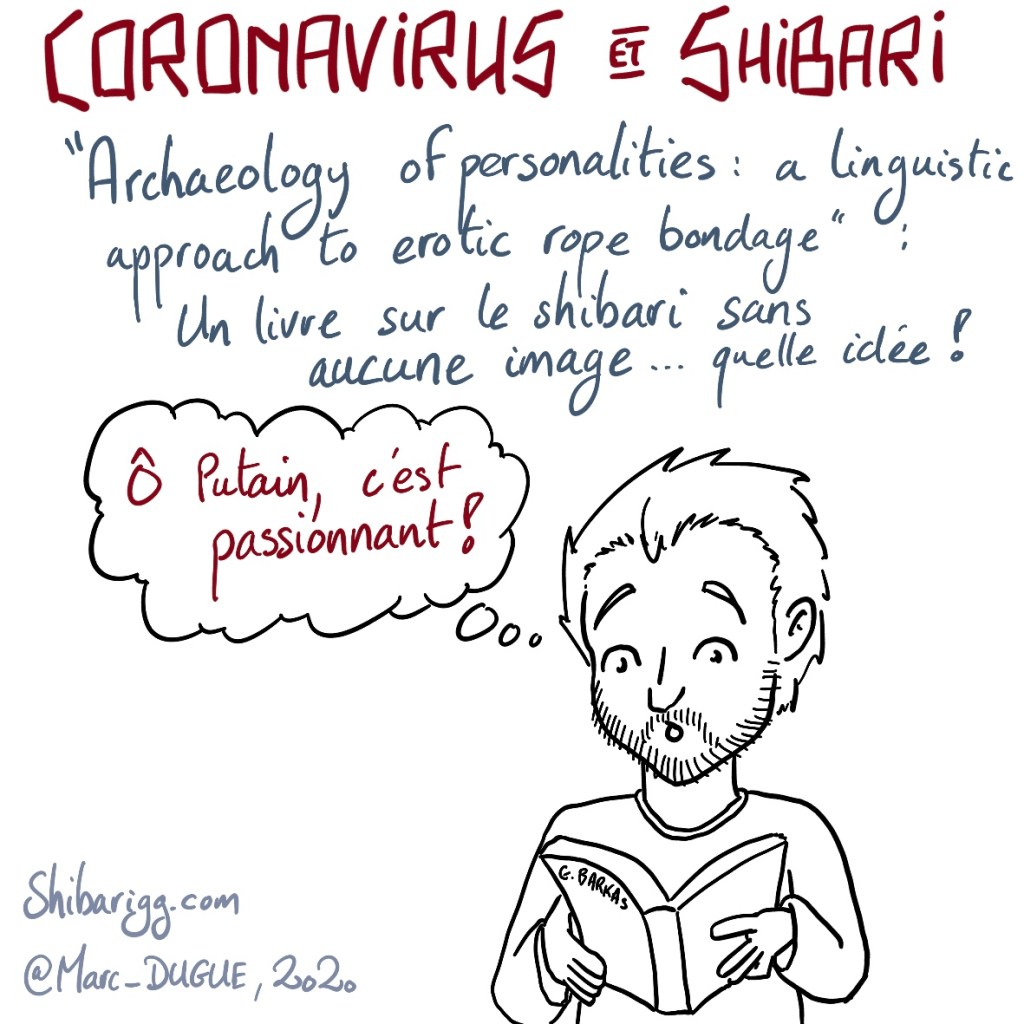 CORONAVIRUS ET SHIBARI
"Archaeology of personalities : a linguistic
approach to erotic rope bondage" :
Un livre sur le shibari sans
aucune image ... quelle idée !
Ô Putain, c'est
passionnant !
G. BARKAS
Shibarigg.com
@Marc_DUGUE, 2020